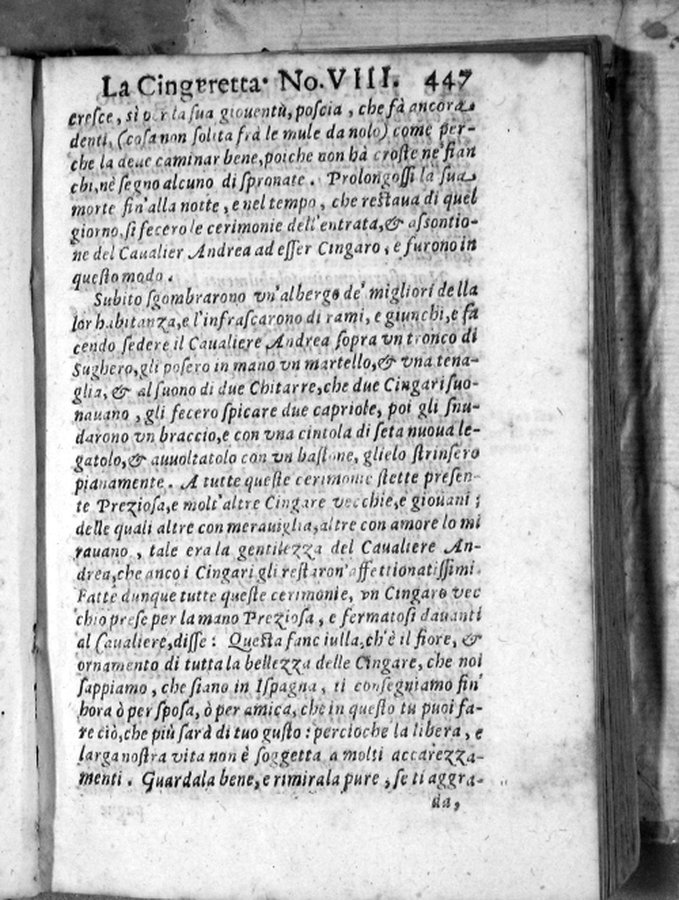 La Cingaretta. No. VIII. 447
cresce, sì per la sua giouentù, poscia, che fà ancora
denti, (cosa non solita frà le mule da nolo) come per-
che la deue caminar bene, poiche non hà croste ne' fian
chi, nè segno alcuno di spronate. Prolongossi la sua
morte fin'alla notte, e nel tempo, che restaua di quel
giorno, si fecero le cerimonie dell'entrata, & assontio-
ne del Caualier Andrea ad esser Cingaro, e furono in
questo modo.
Subito sgombrarono vn'albergo de' migliori della
lor habitanza, e l'infrascarono di rami, e giunchi, e fa
cendo sedere il Caualiere Andrea sopra vn tronco di
Sughero, gli posero in mano vn martello, & vna tena-
glia, & al suono di due Chitarre, che due Cingari suo-
nauano, gli fecero spicare due capriole, poi gli snu-
darono vn braccio, e con vna cintola di seta nuoua le-
gatolo, & auuoltatolo con vn bastone, glielo strinsero
pianamente. A tutte queste cerimonie stette presen-
te Preziosa, e molt'altre Cingare vecchie, e giouani;
delle quali altre con merauiglia, altre con amore lo mi
rauano, tale era la gentilezza del Caualiere An-
drea, che anco i Cingari gli restaron'affettionatissimi.
Fatte dunque tutte queste cerimonie, vn Cingaro vec
chio prese per la mano Preziosa, e fermatosi dauanti
al Caualiere, disse: Questa fanciulla, ch'è il fiore, &
ornamento di tutta la bellezza delle Cingare, che noi
sappiamo, che siano in Ispagna, ti consegniamo fin'
hora ò per sposa, ò per amica, che in questo tu puoi fa-
re ciò, che più sarà di tuo gusto: percioche la libera, e
larga nostra vita non è soggetta a molti accarezza-
menti. Guardala bene, e rimirala pure, se ti aggra-
da,